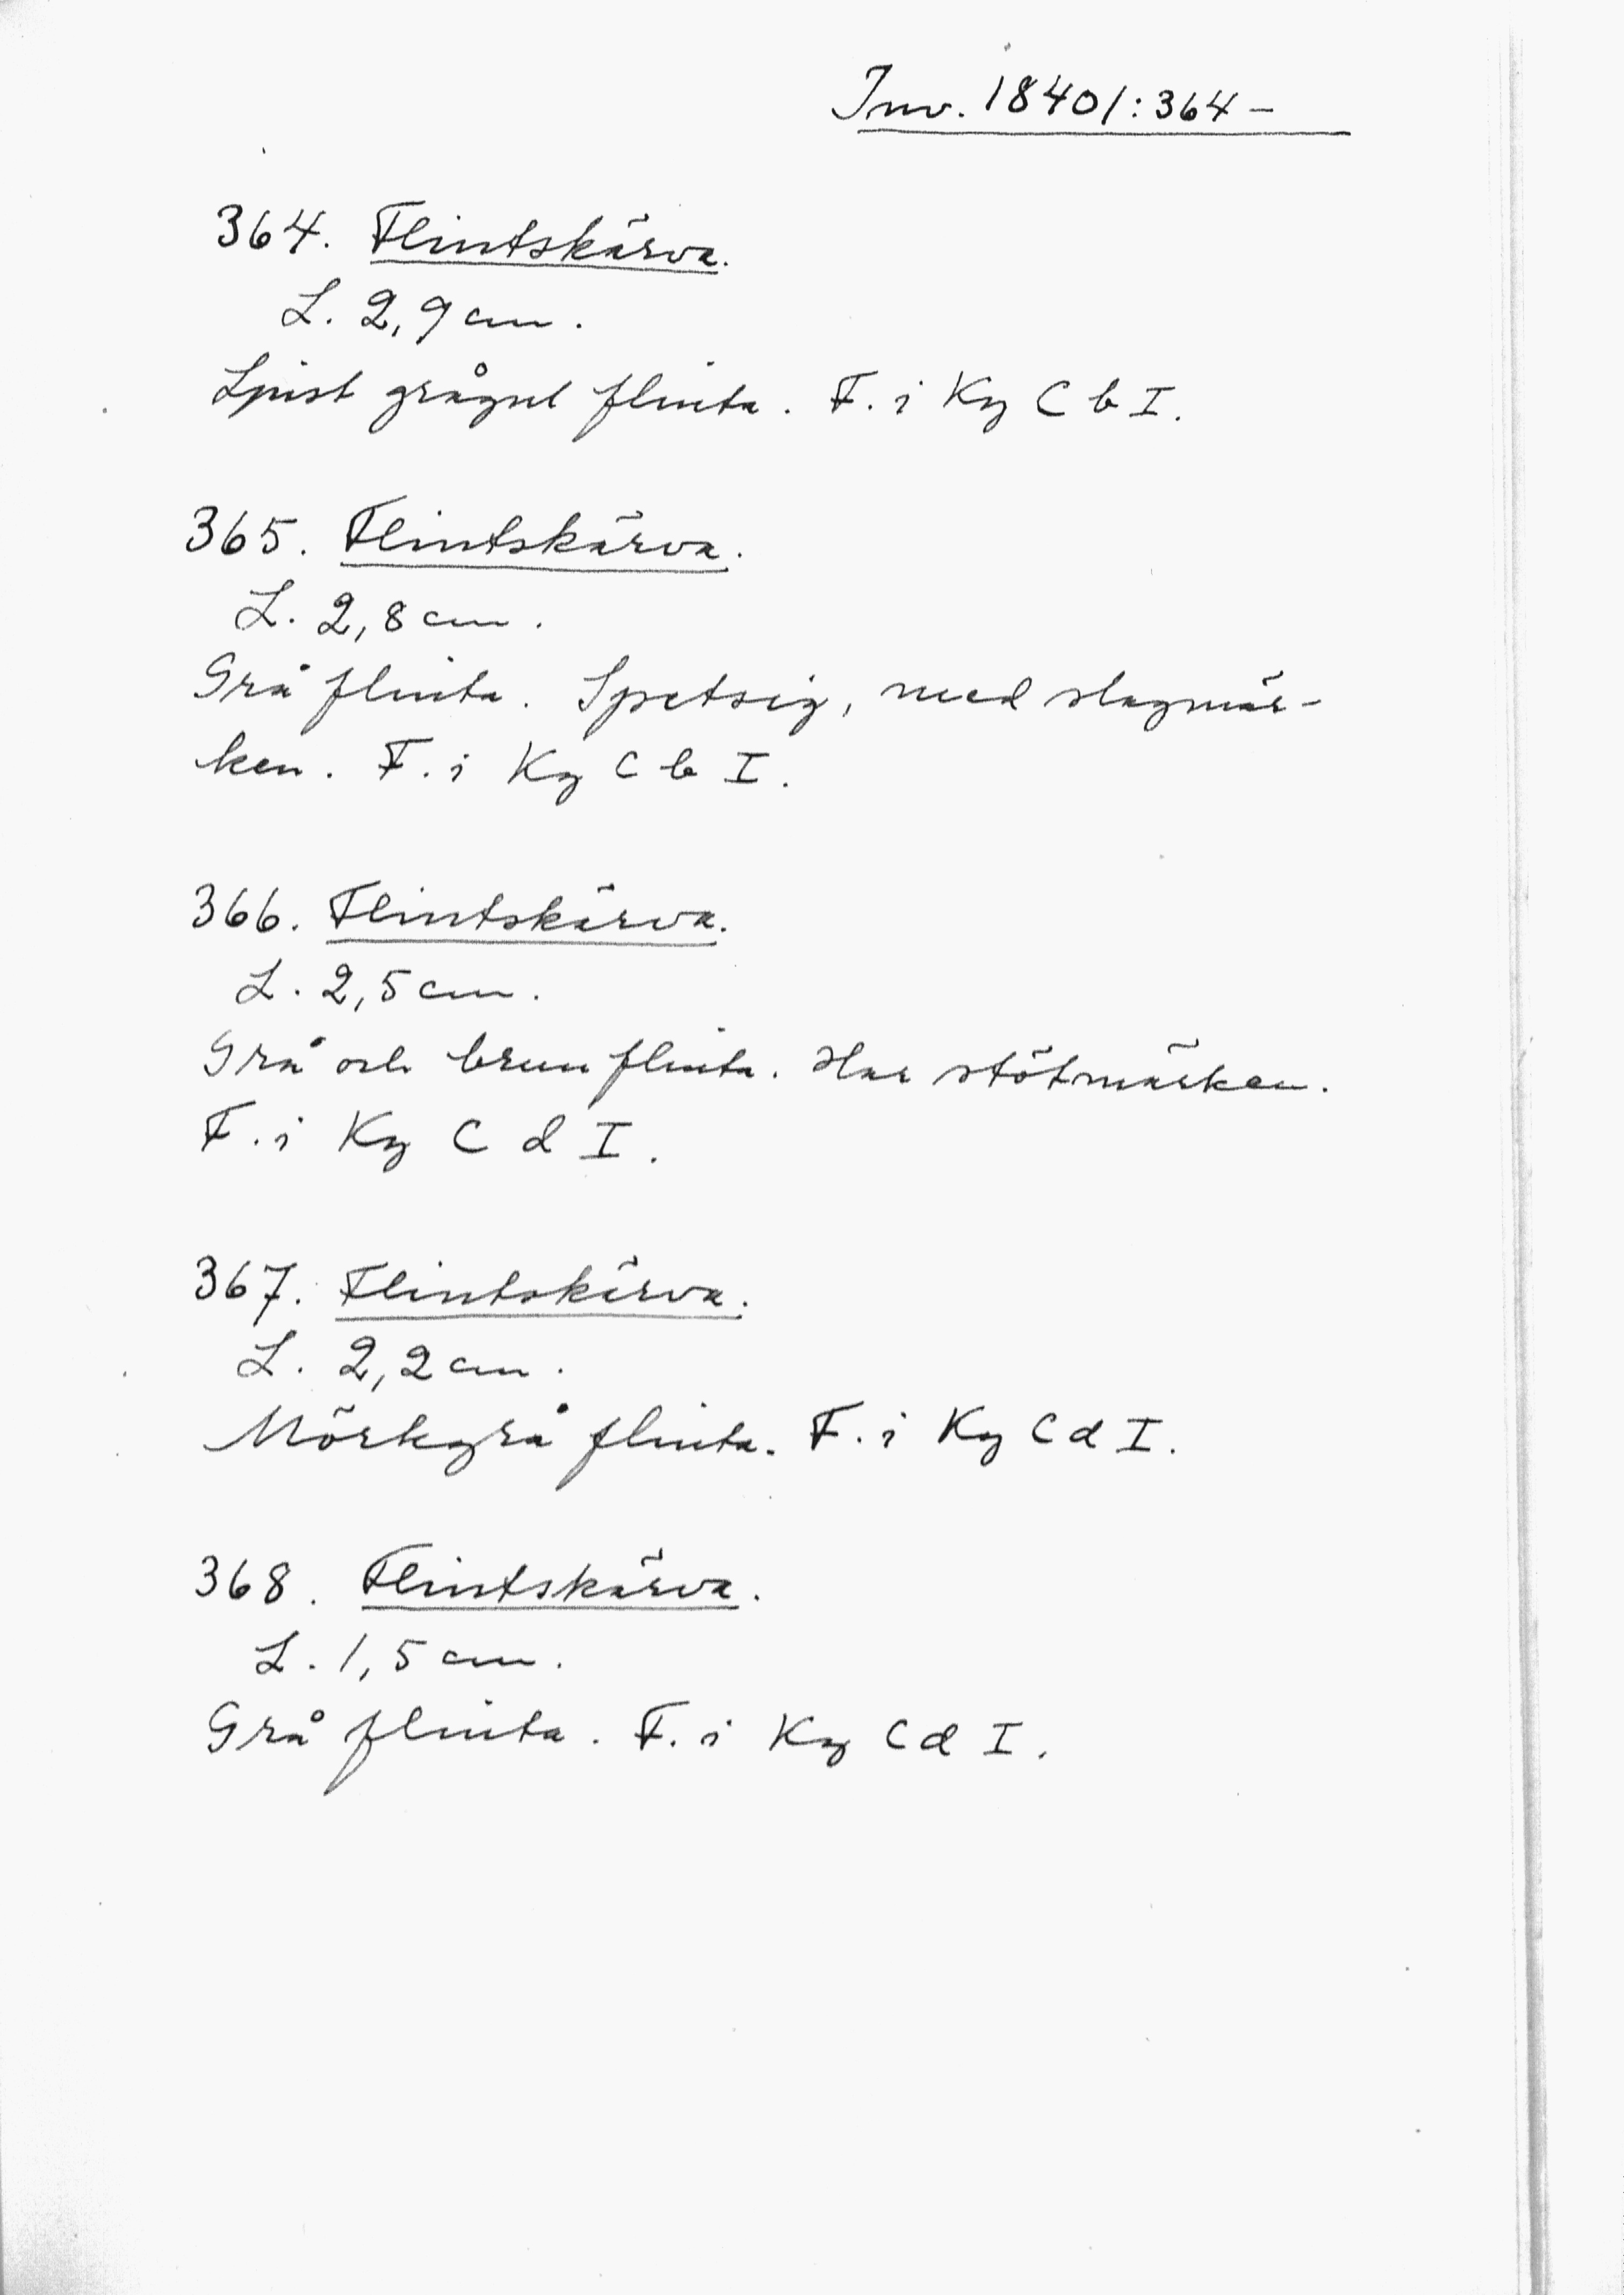 Inv. 18401:364-
364. Flintskärva.
L. 2,9 cm.
Ljust grågul flinta. F. i Kg C b I.
365. Flintskärva.
L. 2,8 cm.
Grå flinta. Spetsig, med slagmär-
ken. F. i Kg C b I.
366. Flintskärva.
L. 2,5 cm.
Grå och brun flinta. Har stötmärken.
F. i Kg C d I.
367. Flintskärva.
L. 2,2 cm.
Mörkgrå flinta. F. i Kg C d I.
368. Flintskärva.
L. 1,5 cm.
Grå flinta. F. i Kg C d I.